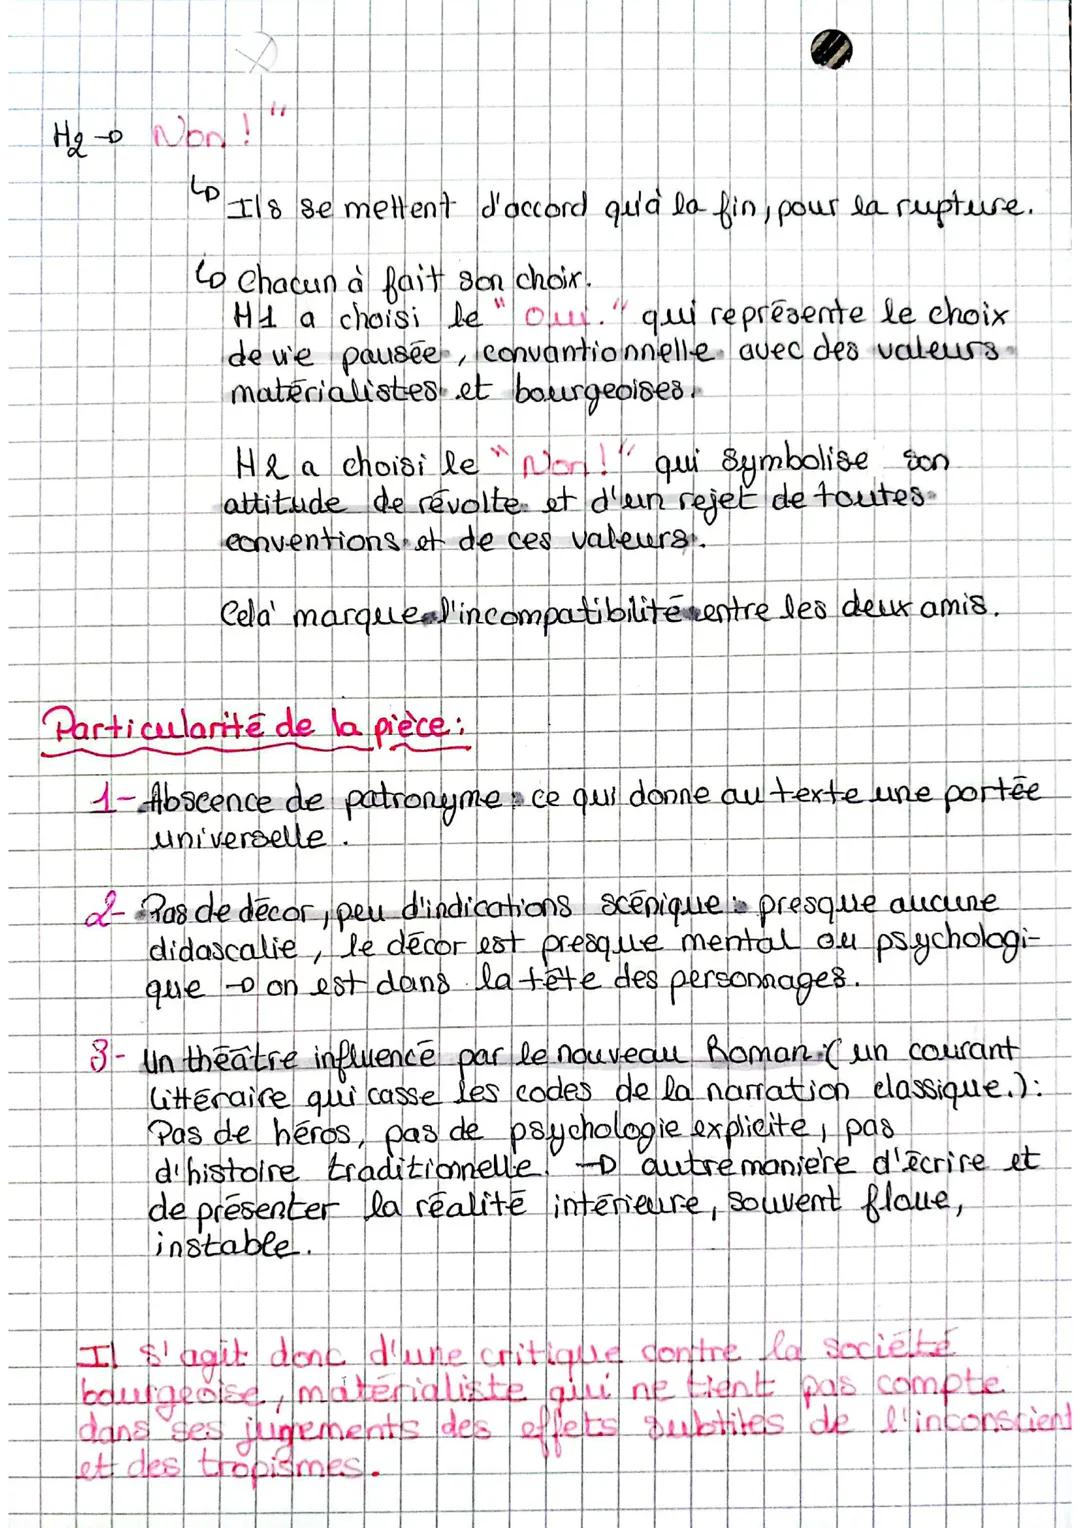 H2 → Non ! "
↳ Ils se mettent d'accord qu'à la fin, pour la rupture.
↳ Chacun à fait son choix.
H1 a choisi le " Oui. " qui représente le choix
de vie pausée, convantionnelle avec des valeurs
matérialistes et bourgeoises.
H2 a choisi le " Non ! " qui symbolise son
attitude de révolte et d'un rejet de toutes
conventions et de ces valeurs.
Celà marque l'incompatibilité entre les deux amis.
Particularité de la pièce :
1- Abscence de patronyme : ce qui donne au texte une portée
universelle.
2- Pas de décor, peu d'indications scénique : presque aucune
didascalie, le décor est presque mental ou psychologi-
que → on est dans la tête des personnages.
3- Un théâtre influencé par le nouveau Roman : ( un courant
littéraire qui casse les codes de la narration classique.) :
Pas de héros, pas de psychologie explicite, pas
d'histoire traditionnelle. → autre manière d'écrire et
de présenter la réalité intérieure, souvent floue,
instable.
Il s'agit donc d'une critique contre la société
bourgeoise, matérialiste qui ne tient pas compte
dans ses jugements des effets subtiles de l'inconscient
et des tropismes.